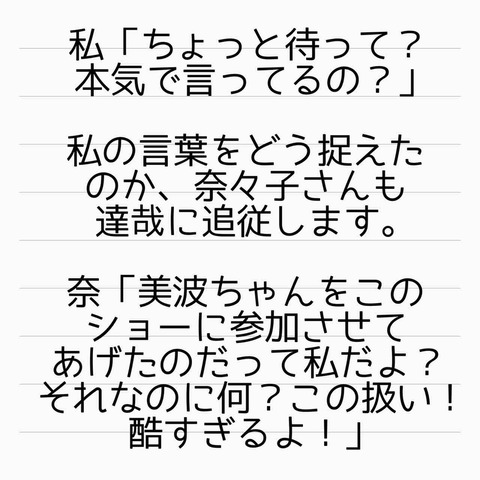 私「ちょっと待って？
本気で言ってるの？」
私の言葉をどう捉えた
のか、奈々子さんも
達哉に追従します。
奈「美波ちゃんをこの
ショーに参加させて
あげたのだって私だよ？
それなのに何？この扱い！
酷すぎるよ！」